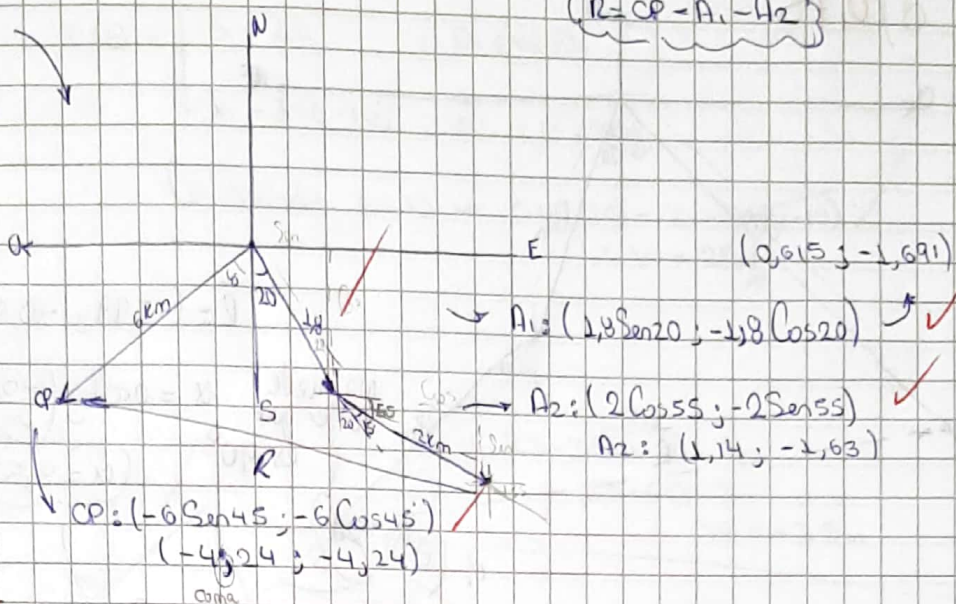 (R = CP - A1 - A2)
N
O
E
(0,615 ; -1,691)
6km
20
1,8
A1: (1,8Sen20 ; -1,8Cos20)
CP
S
A2: (2Cos55 ; -2Sen55)
20
2km
A2: (1,14 ; -1,63)
R
CP: (-6Sen45 ; -6Cos45)
(-4,24 ; -4,24)
Coma